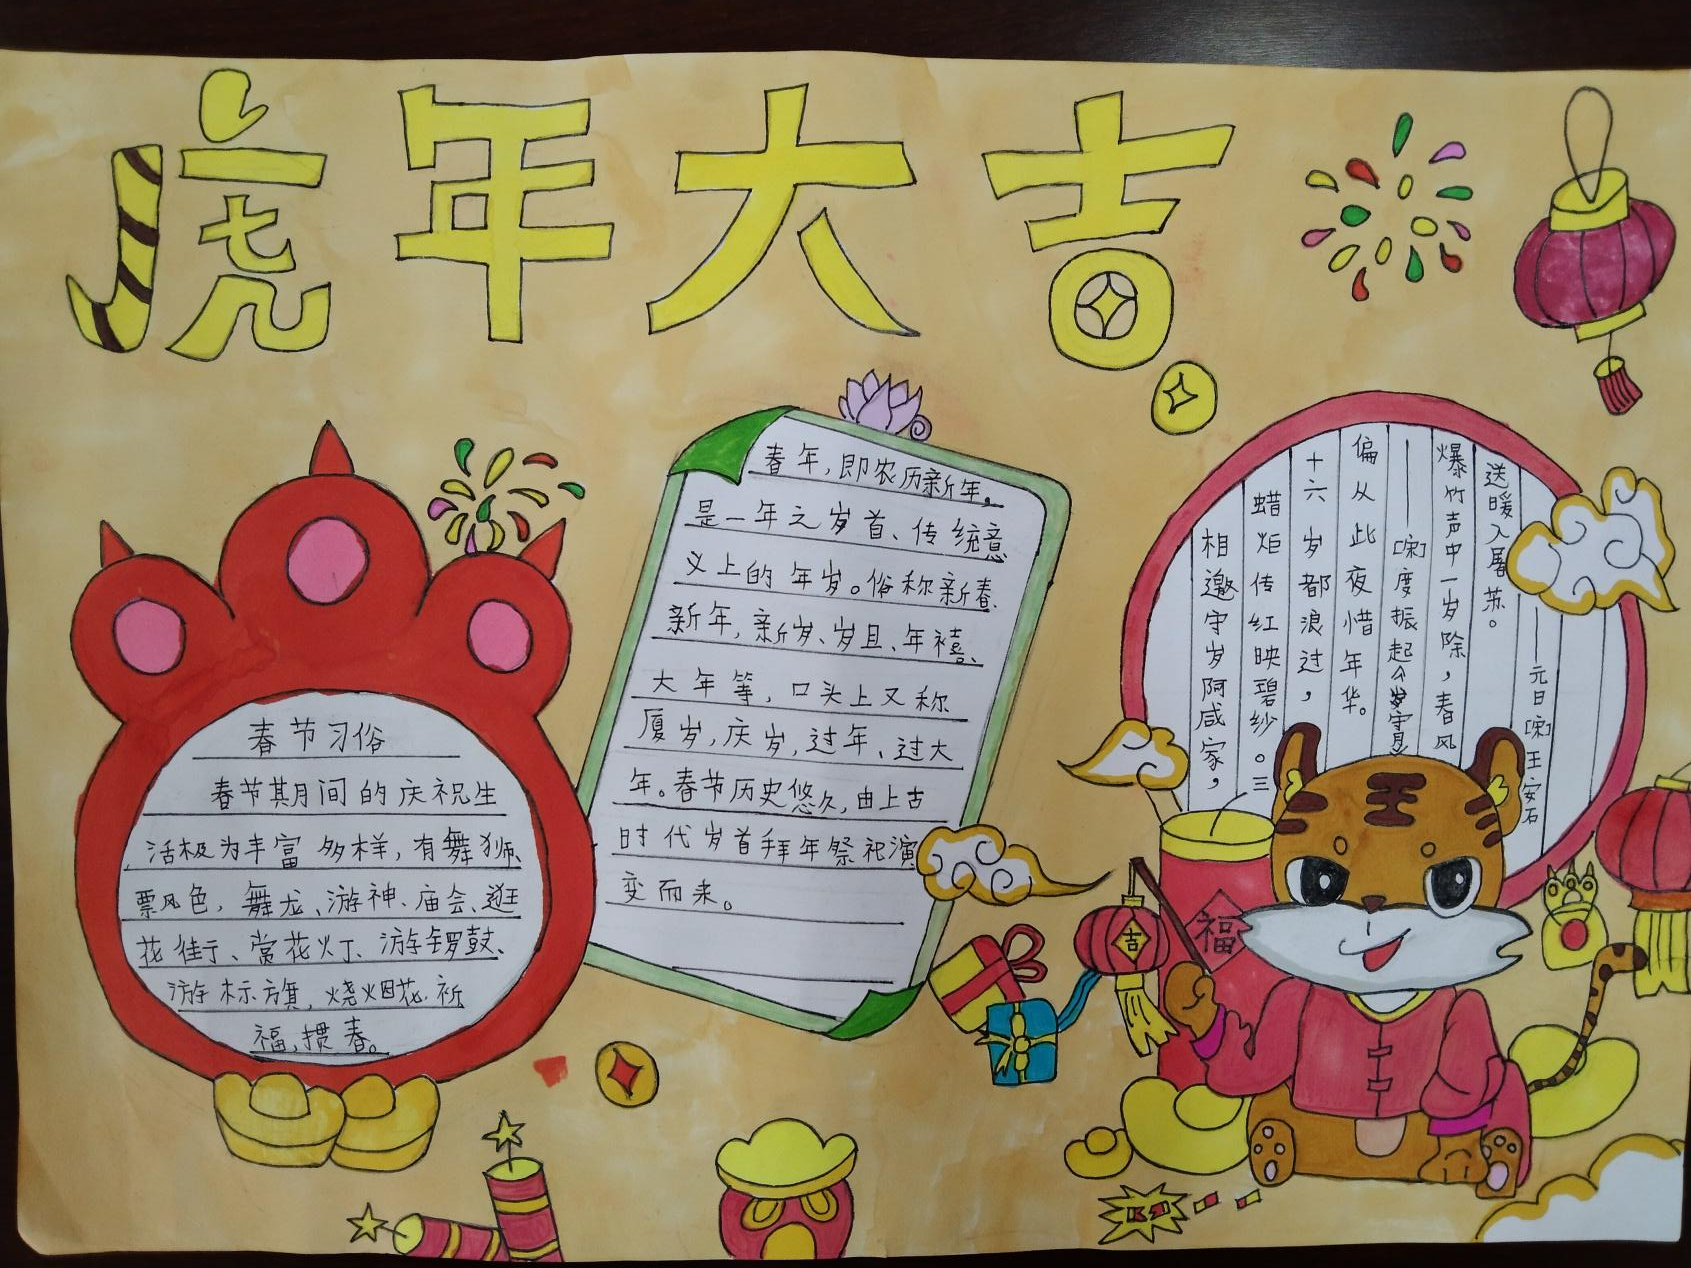 虎年大吉
春节习俗
春节其月间的庆祝生
活极为丰富多样，有舞狮、
票风色，舞龙、游神、庙会、逛
花街、赏花灯、游锣鼓、
游标旗，烧烟花、祈
福，掼春。
春年，即农历新年，
是一年之岁首、传统意
义上的年岁。俗称新春、
新年，新岁、岁且、年禧、
大年等，口头上又称
厦岁，庆岁，过年、过大
年。春节历史悠久，由上古
时代岁首拜年祭祀演
变而来。
——元日[宋]王安石
送暖入屠苏。
爆竹声中一岁除，春风
——[宋]度振起《岁守月》
偏从此夜惜年华。
十六岁都浪过，
蜡炬传红映碧纱。三
相邀守岁阿咸家，
福
吉
王